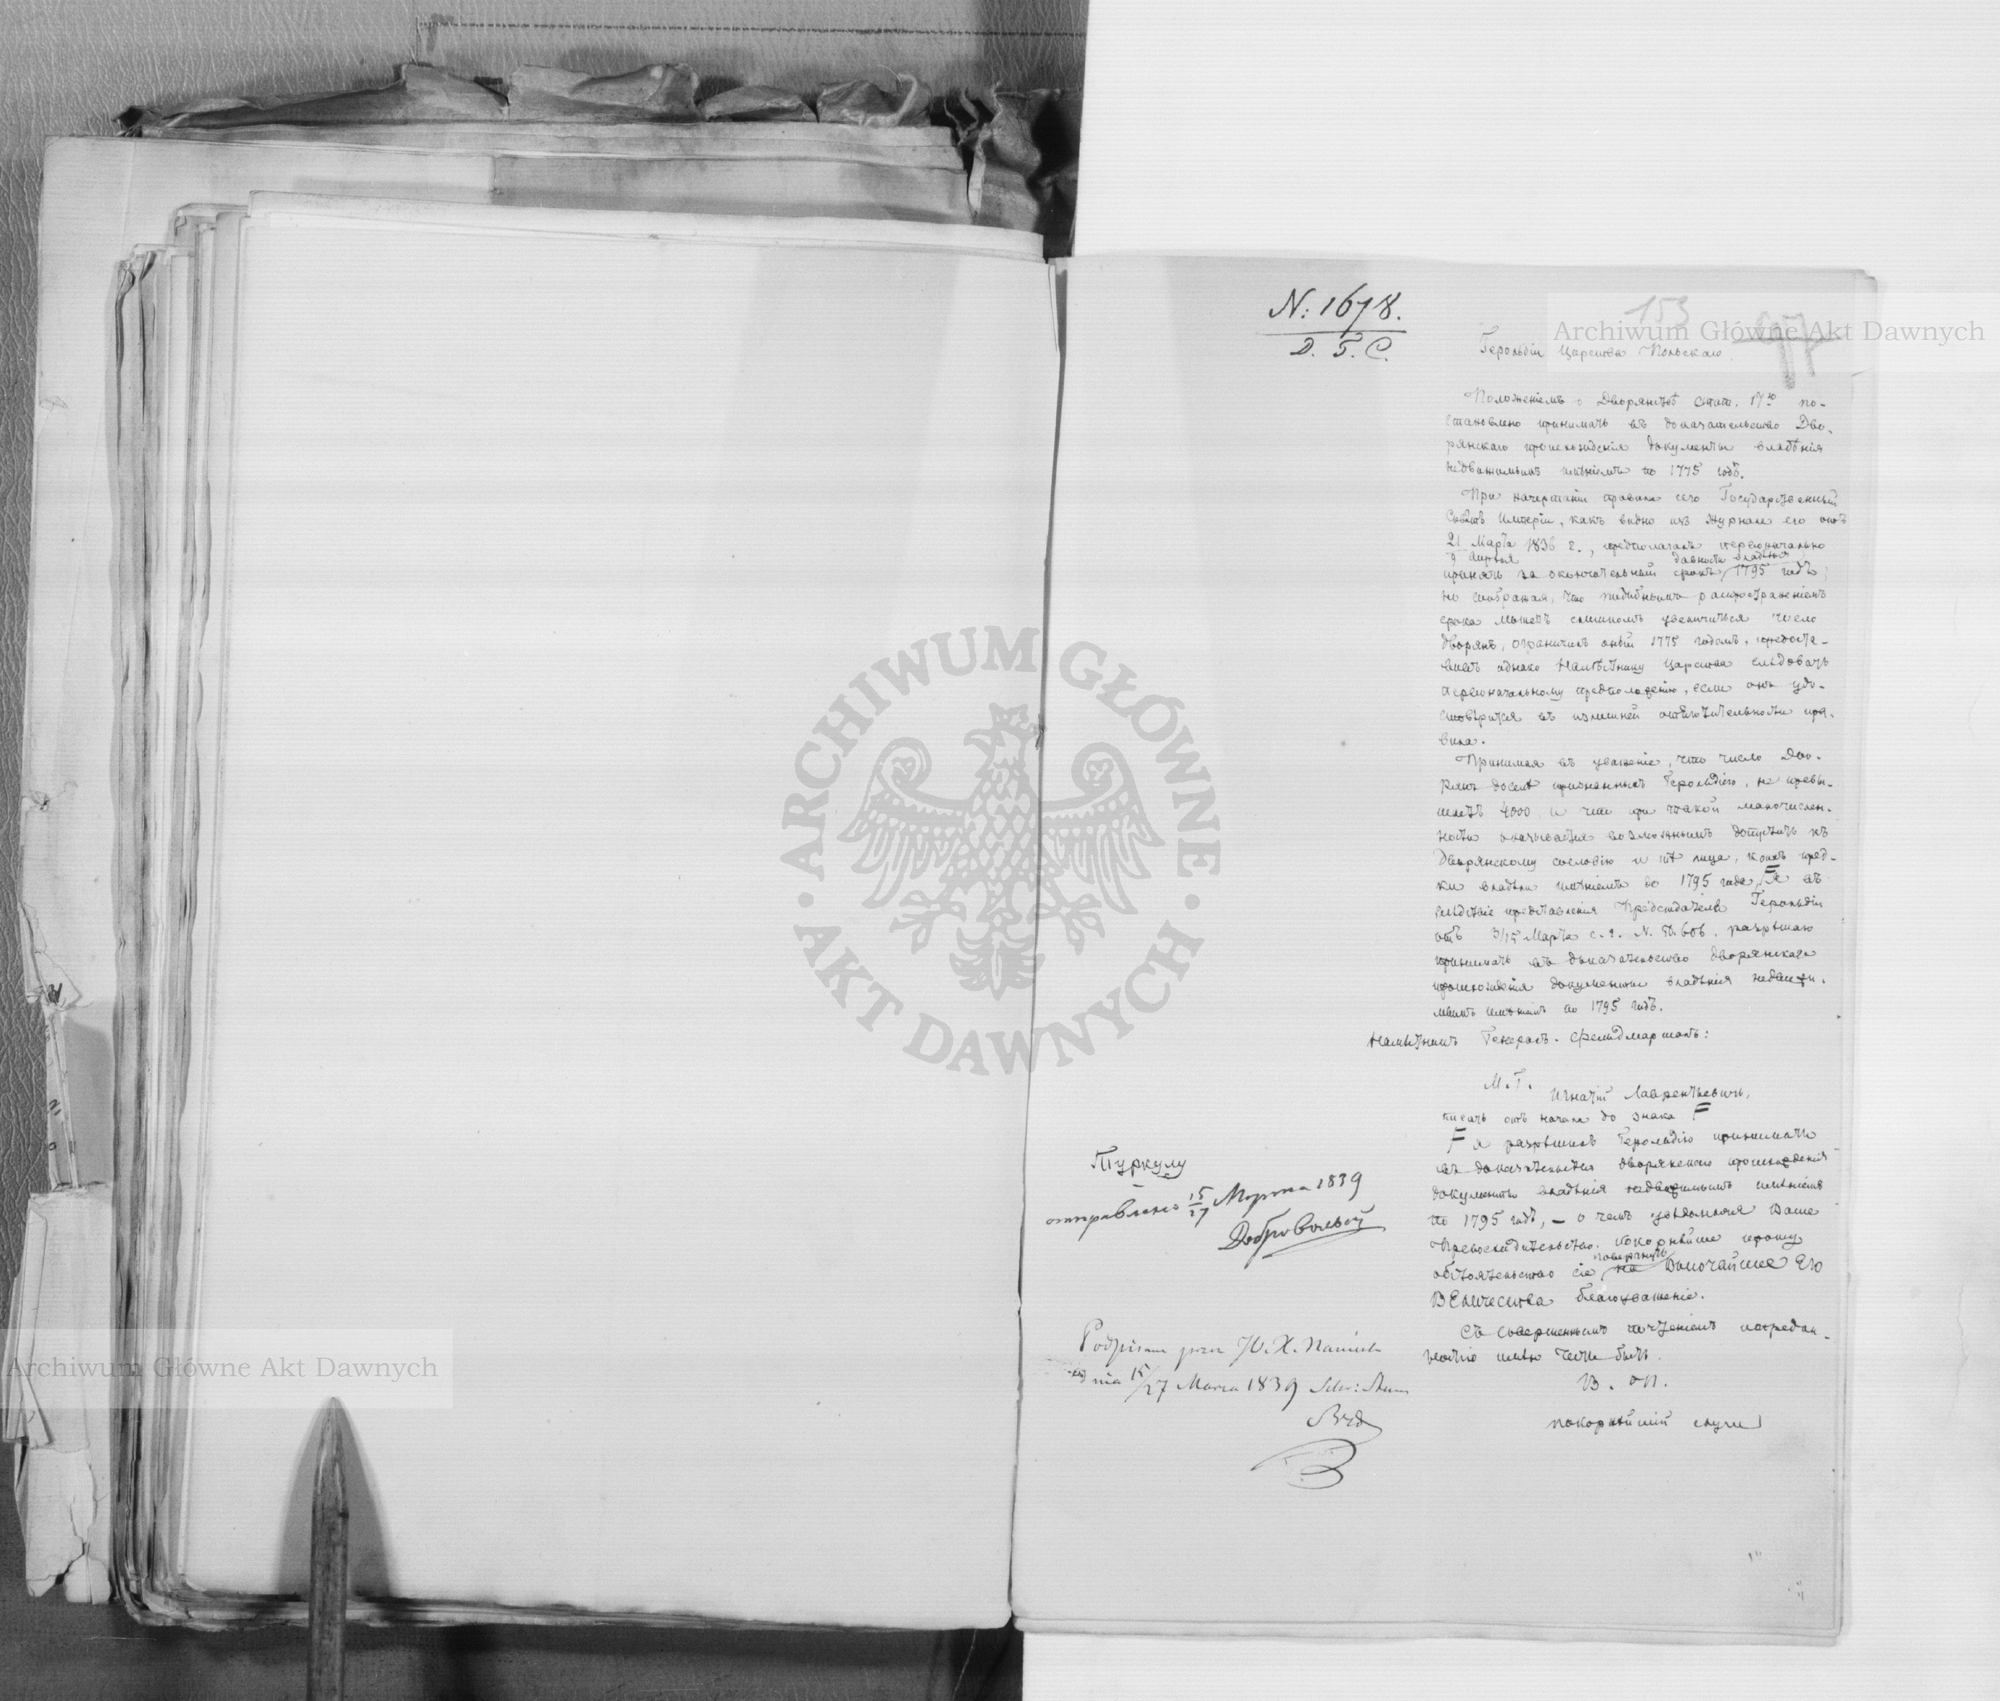 N: 1678.
D. G. C.
153
97
Герольдіи Царства Польскаго.
Положеніемъ о Дворянствѣ стат. 17ю по-
становлено принимать въ доказательство Дво-
рянскаго происхожденія документы владѣнія
недвижимымъ имѣніемъ по 1775 годъ.
При начертаніи правила сего Государственный
Совѣтъ Имперіи, какъ видно изъ журнала его отъ
21 Марта
9 Апрѣля 1836 г., предполагалъ первоначально
давности владѣнія
принять за окончательный срокъ 1795 годъ;
но сообразивъ, что подобнымъ распространеніемъ
срока можетъ слишкомъ увеличиться число
дворянъ, ограничилъ оный 1775 годомъ, предоста-
вивъ однако Намѣстнику Царства слѣдовать
первоначальному предположенію, если онъ удо-
стовѣрится въ излишней отяготительности пра-
вила.
Принимая въ уваженіе, что число Дво-
рянъ доселѣ признанныхъ Герольдіею, не превы-
шаетъ 4000 и что при такой малочислен-
ности оказывается возможнымъ допустить къ
Дворянскому сословію и тѣ лица, коихъ пред-
ки владѣли имѣніемъ до 1795 года, F я въ
слѣдствіе представленія Предсѣдателя Герольдіи
отъ 3/15 Марта с. г. N. 606. разрѣшаю
принимать въ доказательство дворянскаго
происхожденія документы владѣнія недвижи-
мымъ имѣніемъ по 1795 годъ.
Намѣстникъ Генералъ-Фельдмаршалъ:
М. Г.
Игнатій Лаврентьевичъ,
писать отъ начала до знака F
F я разрѣшилъ Герольдію принимать
въ доказательства дворянскаго происхожденія
документы владѣнія недвижимымъ имѣніемъ
по 1795 годъ, – о чемъ увѣдомляя Ваше
Превосходительство, покорнѣйше прошу
повергнуть
обстоятельство сіе на Высочайшее Его
Величества благоуваженіе.
Съ совершеннымъ почтеніемъ и предан-
ностію имѣю честь быть.
В. П.
покорнѣйшій слуга
Туркулу
отправлено 15/27 Марта 1839
Podpisany przez JO. X. Namiest.
dnia 15/27 Marca 1839